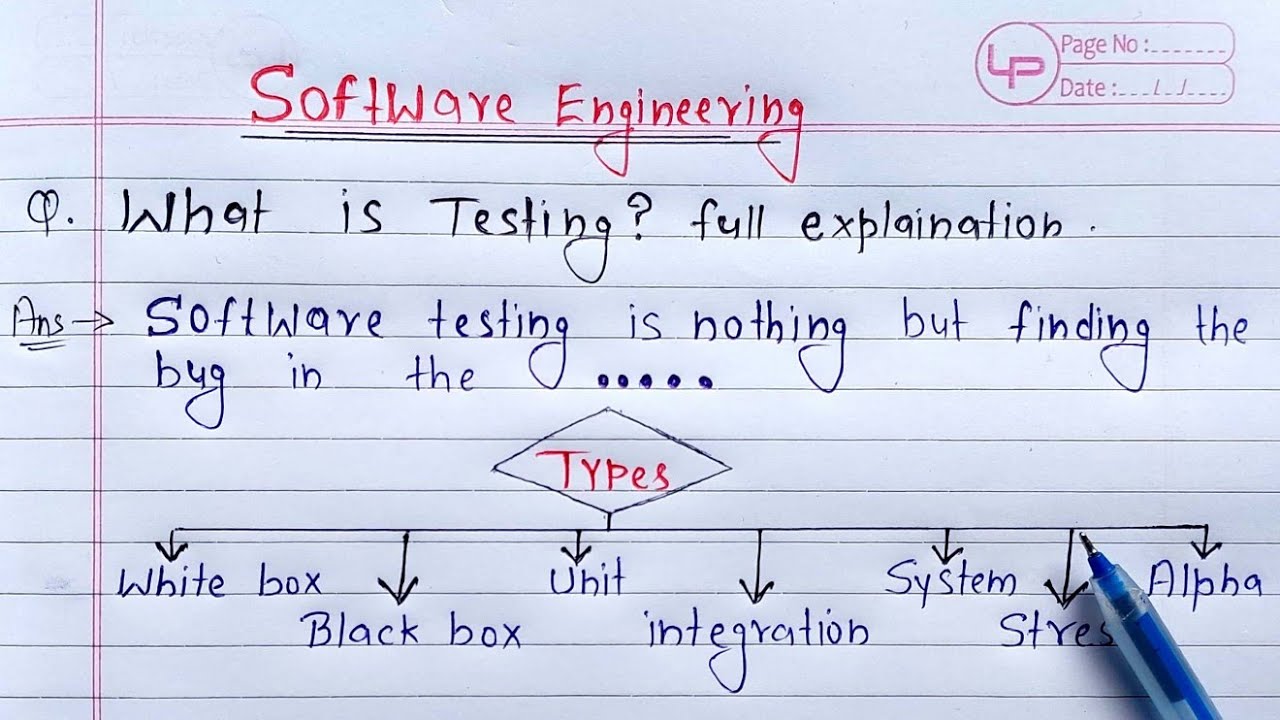 LP
Page No :_ _ _ _ _ _ _
Date :_ _ _/_ _/_ _ _ _
Software Engineering
Q. What is Testing? full explaination.
Ans → Software testing is nothing but finding the
bug in the .....
Types
White box Unit System Alpha
Black box integration Stres